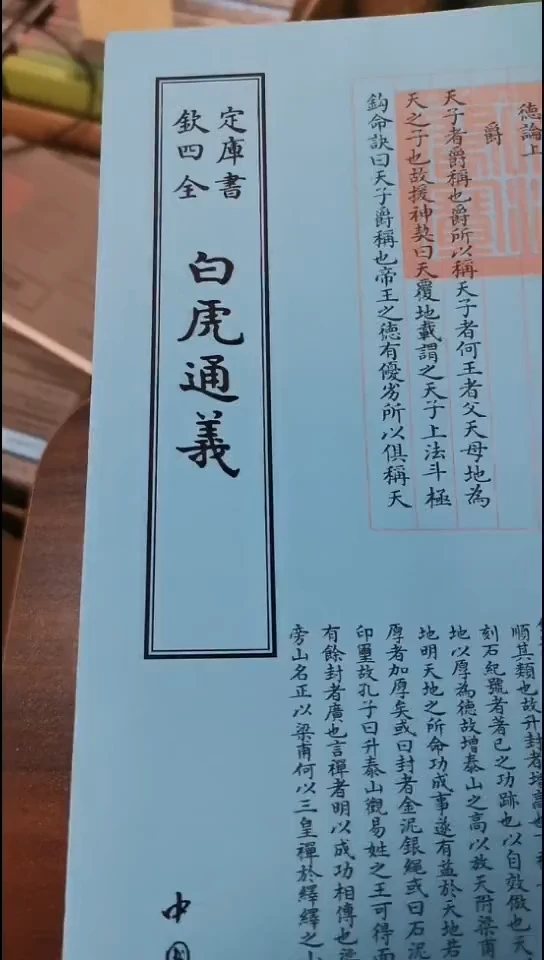 欽定四庫全書
白虎通義
德論上
爵
天子者爵稱也爵所以稱天子者何王者父天母地為
天之子也故援神契曰天覆地載謂之天子上法斗極
鈎命訣曰天子爵稱也帝王之德有優劣所以俱稱天
順其類也故升封者增高也
刻石紀號者著已之功跡也以自效倣也天
地以厚為德故增泰山之高以放天附梁甫
地明天地之所命功成事遂有益於天地若
厚者加厚矣或曰封者金泥銀繩或曰石泥
印璽故孔子曰升泰山觀易姓之王可得而
有餘封者廣也言禪者明以成功相傳也梁
旁山名正以梁甫何以三皇禪於繹繹之山
中